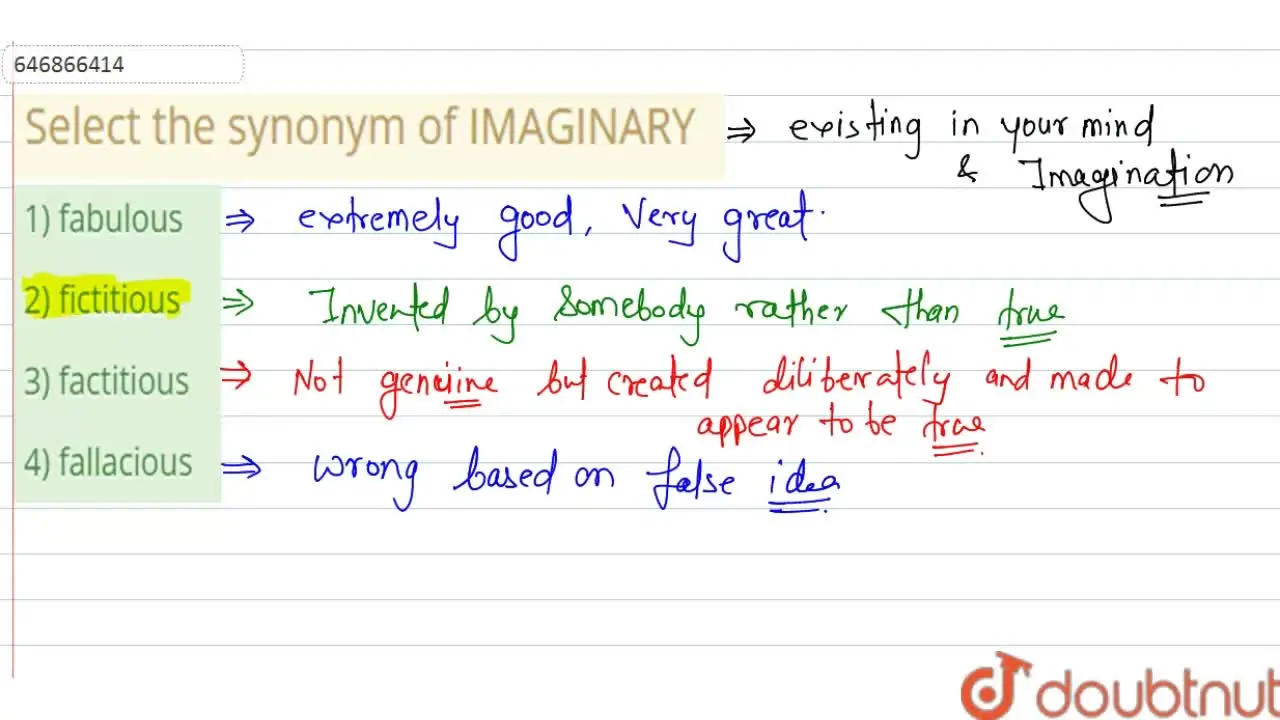 646866414
Select the synonym of IMAGINARY ⇒ existing in your mind
& Imagination
1) fabulous ⇒ extremely good, Very great.
2) fictitious ⇒ Invented by Somebody rather than true
3) factitious ⇒ Not genuiine but created diliberately and made to
appear to be true.
4) fallacious ⇒ wrong based on false idea.
doubtnut